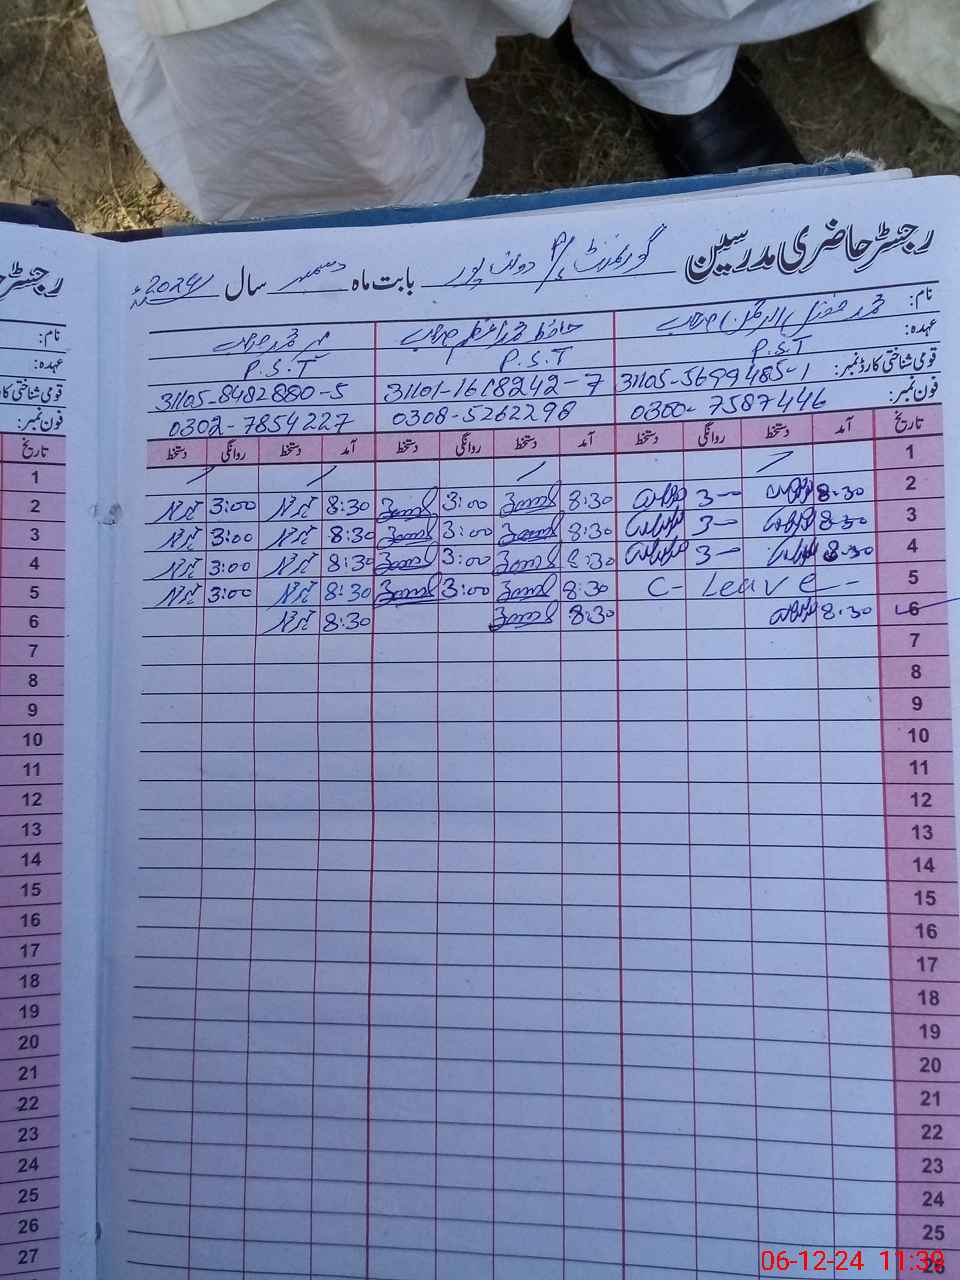 رجسٹر حاضری مدرسین گورنمنٹ P/S بابت ماہ دسمبر سال 2024ء
نام: محمد صاحب حافظ محمد اعظم صاحب محمد صاحب
عہدہ: P.S.T P.S.T P.S.T
قومی شناختی کارڈ نمبر: 31105-5699485-1 31101-1618242-7 31105-8482880-5
فون نمبر: 0300-7587446 0308-5262298 0302-7854227
تاریخ آمد دستخط روانگی دستخط آمد دستخط روانگی دستخط آمد دستخط روانگی دستخط تاریخ
1 1
2 8:30 3- 8:30 3:00 8:30 3:00 2
3 8:30 3- 8:30 3:00 8:30 3:00 3
4 8:30 3- 8:30 3:00 8:30 3:00 4
5 C- Leave - 8:30 3:00 8:30 3:00 5
6 8:30 8:30 8:30 6
7 7
8 8
9 9
10 10
11 11
12 12
13 13
14 14
15 15
16 16
17 17
18 18
19 19
20 20
21 21
22 22
23 23
24 24
25 25
26 26
27
رجسٹر
نام:
عہدہ:
قومی شناختی
فون نمبر:
06-12-24 11:39